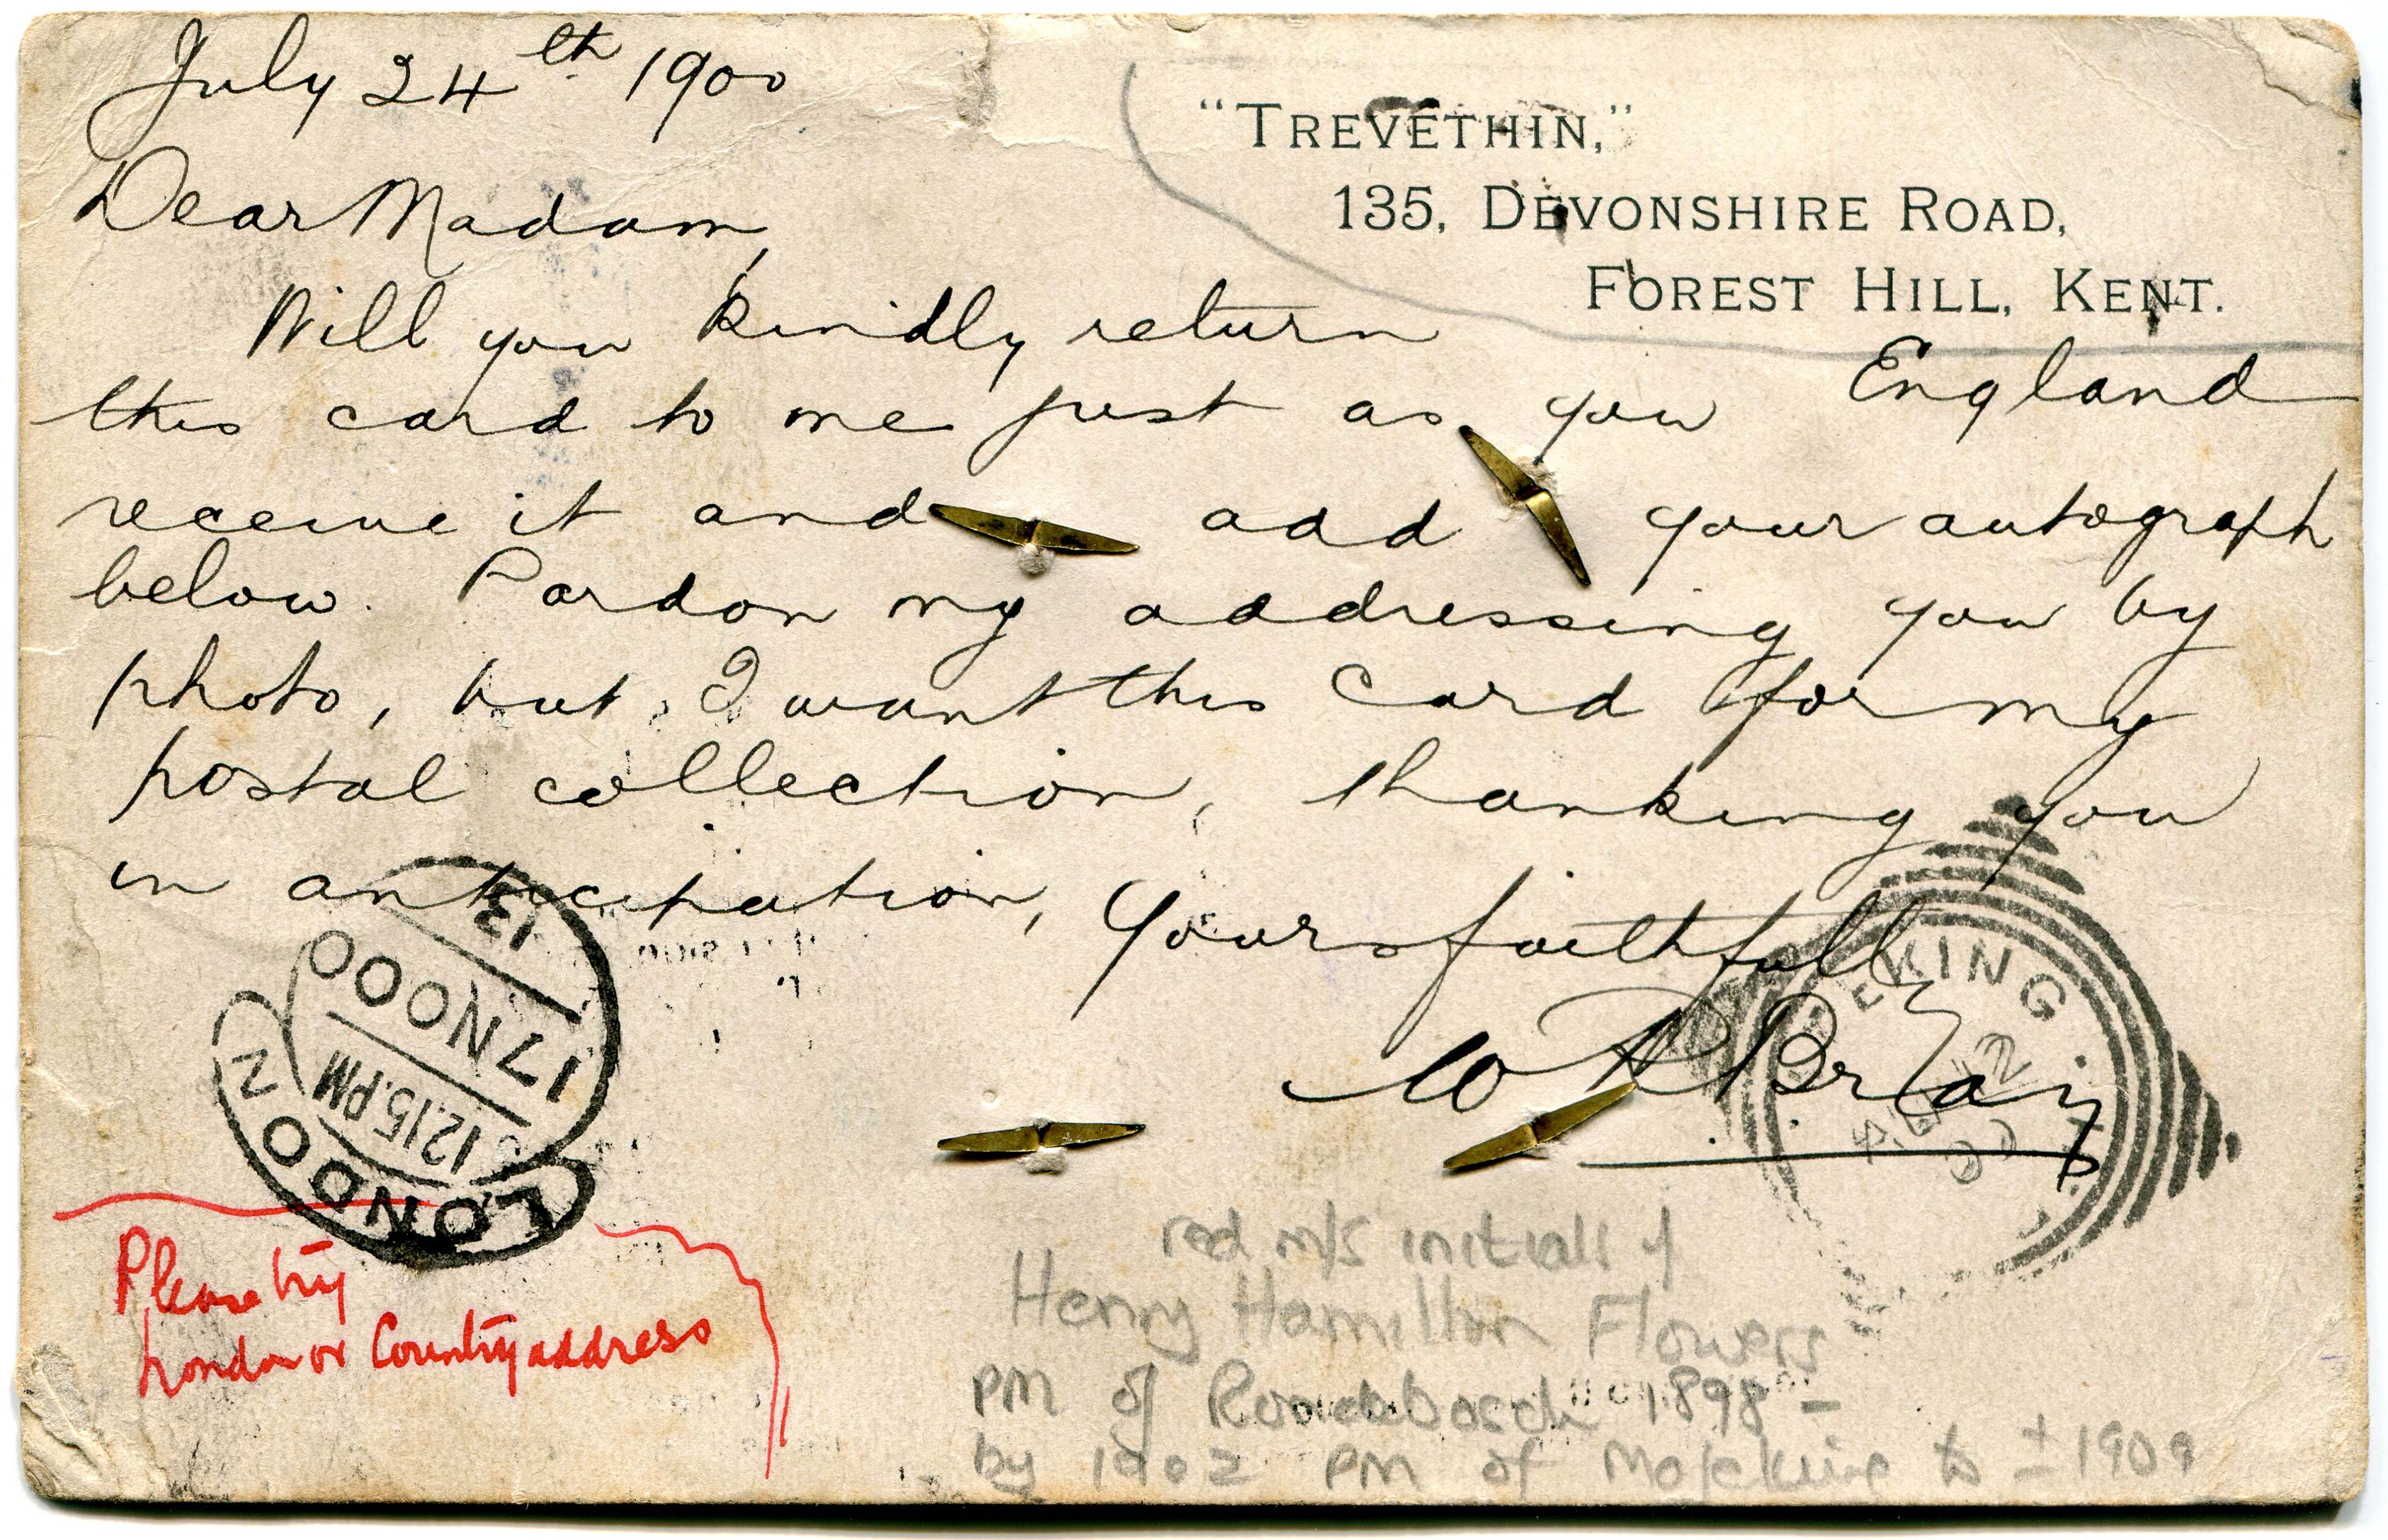 July 24th 1900
"TREVETHIN,"
135, DEVONSHIRE ROAD,
FOREST HILL, KENT.
England
Dear Madam,
Will you kindly return
this card to me just as you
receive it and add your autograph
below. Pardon my addressing you by
photo, but I want this card for my
postal collection, thanking you
in anticipation, Yours faithfully
W R Bray
LONDON
12.15.PM
17 NO 00
13
KING
Please try
London or Country address
red m/s initials of
Henry Hamilton Flowers
PM of Rondebosch 1898 -
by 1902 PM of Mafeking to ± 1909